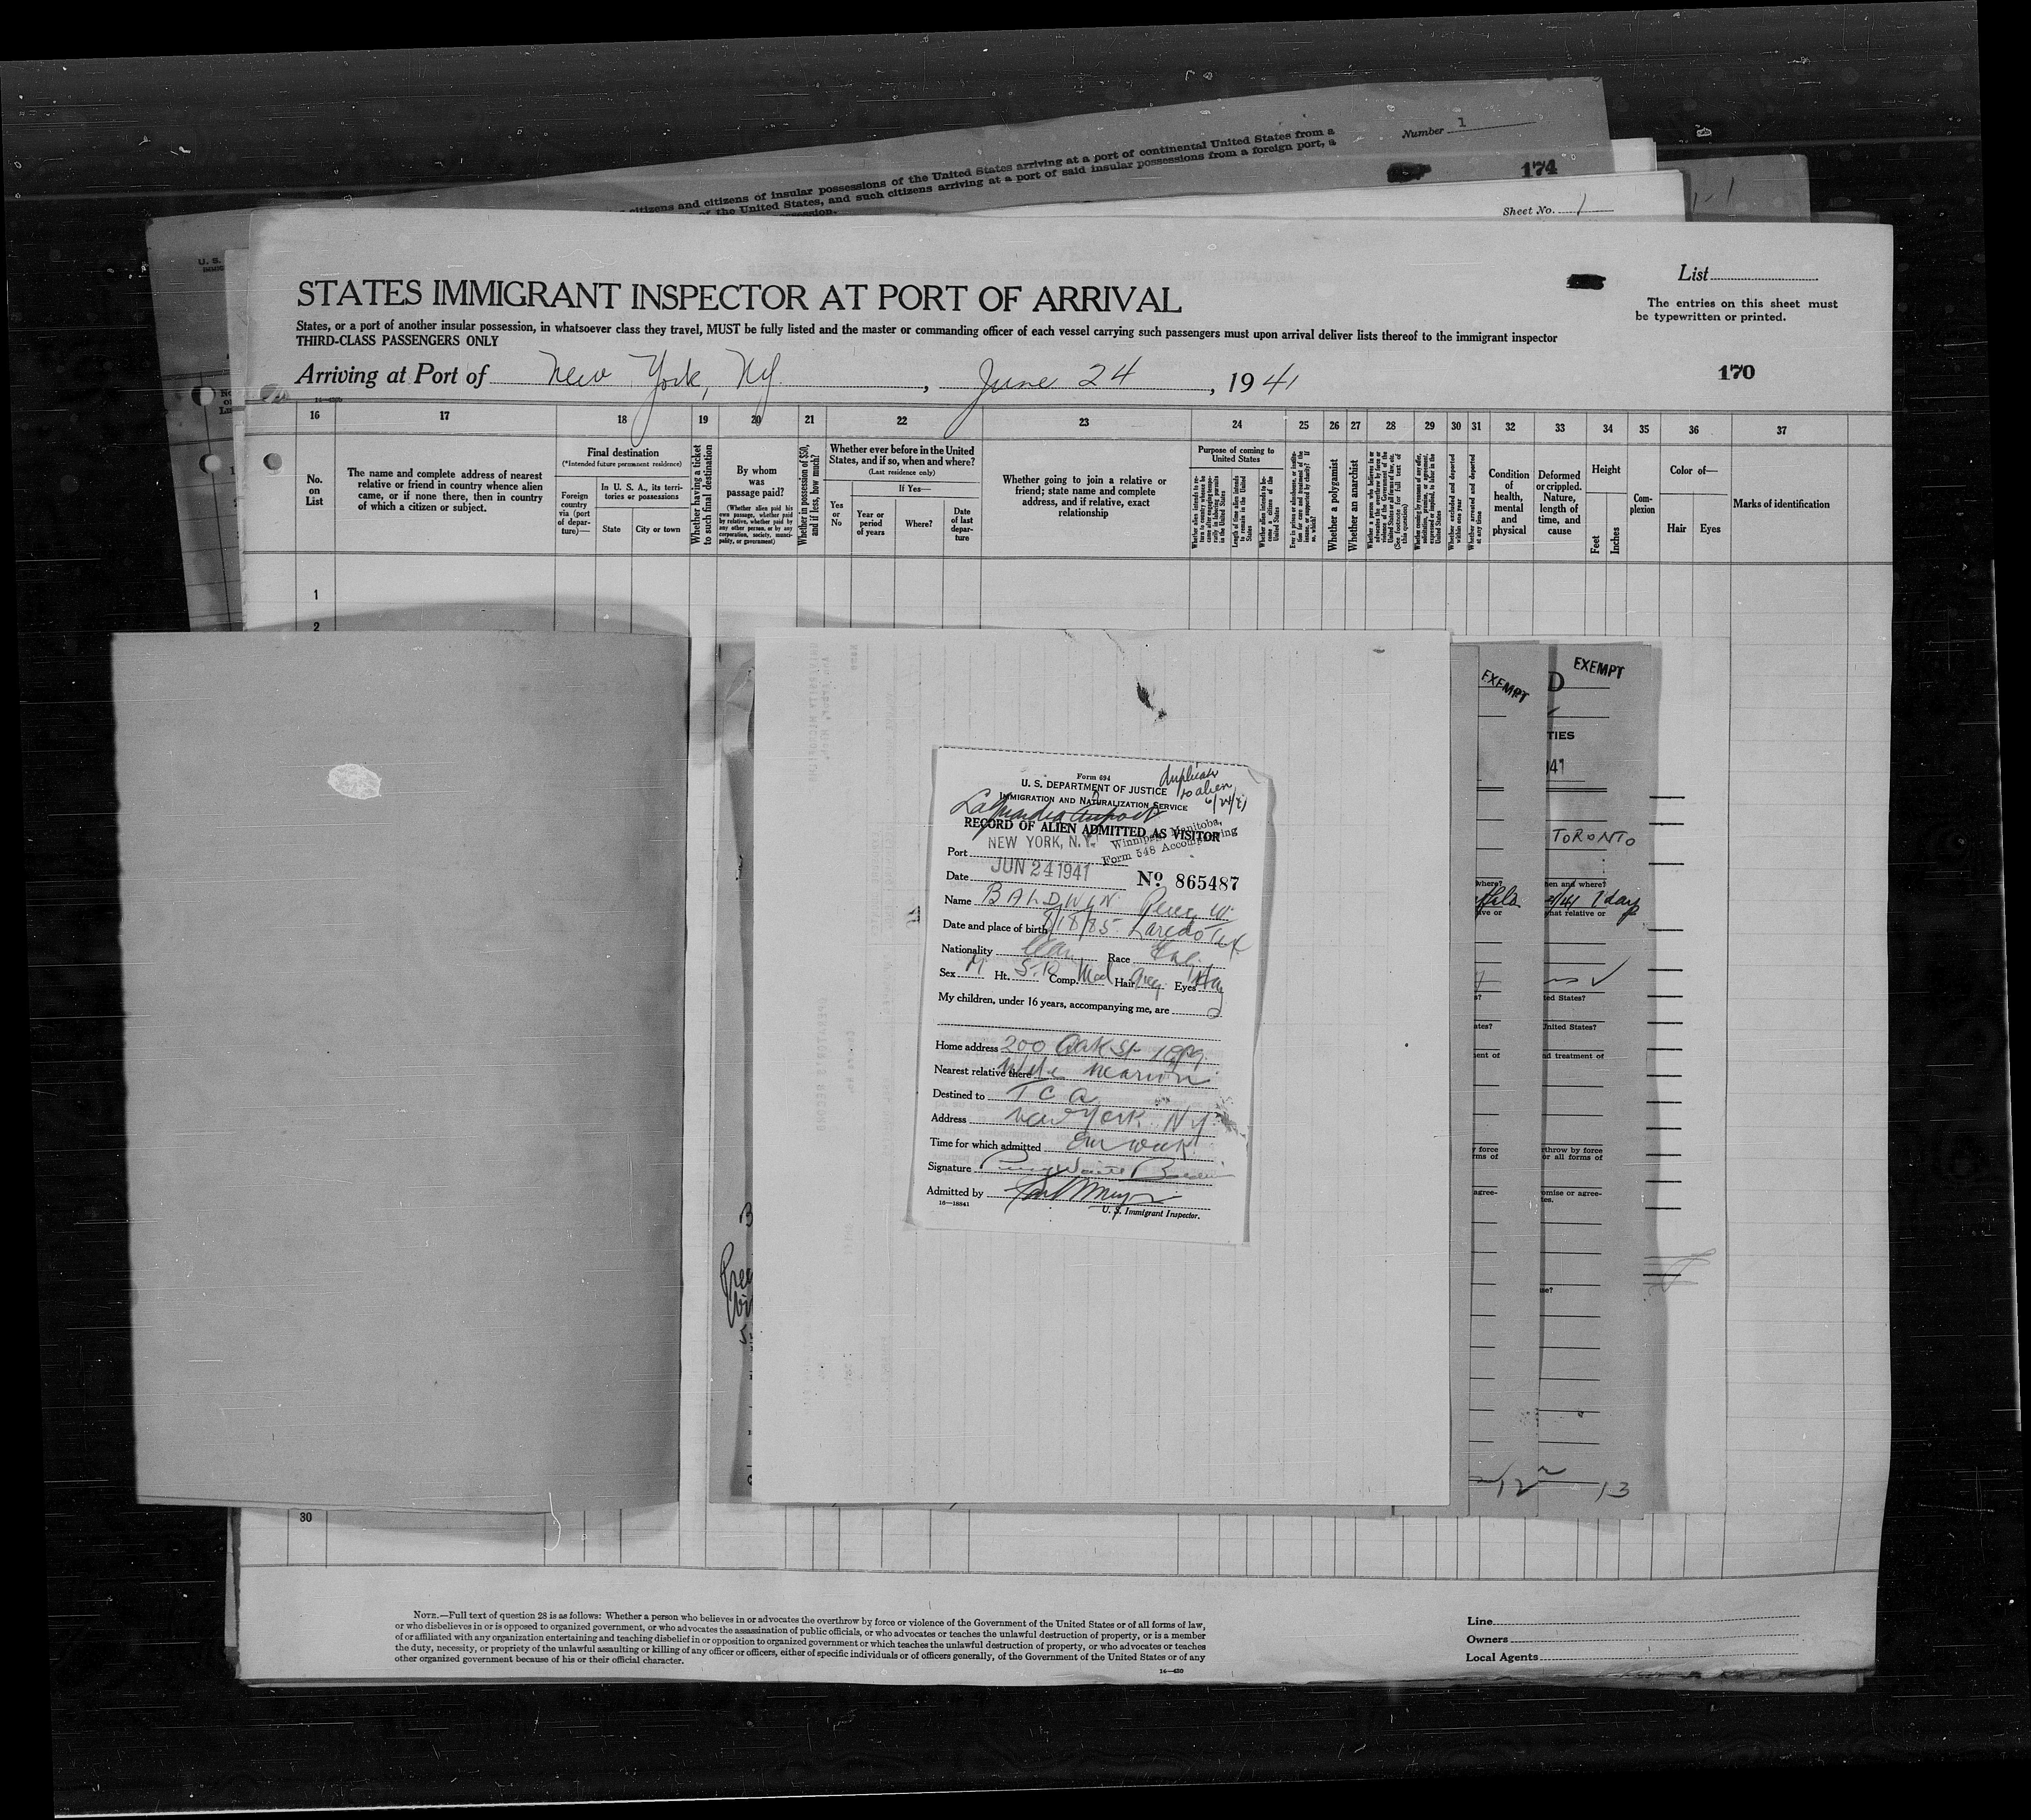 Number 1
citizens and citizens of insular possessions of the United States arriving at a port of continental United States from a
of the United States, and such citizens arriving at a port of said insular possessions from a foreign port, a
possession.
174
Sheet No. 1
U. S.
List
STATES IMMIGRANT INSPECTOR AT PORT OF ARRIVAL
The entries on this sheet must
be typewritten or printed.
States, or a port of another insular possession, in whatsoever class they travel, MUST be fully listed and the master or commanding officer of each vessel carrying such passengers must upon arrival deliver lists thereof to the immigrant inspector
THIRD-CLASS PASSENGERS ONLY
Arriving at Port of New York, NY, June 24, 1941
170
16 17 18 19 20 21 22 23 24 25 26 27 28 29 30 31 32 33 34 35 36 37
No. on List
The name and complete address of nearest
relative or friend in country whence alien
came, or if none there, then in country
of which a citizen or subject.
Final destination
(*Intended future permanent residence)
Foreign
country
via (port
of depar-
ture)—
In U. S. A., its terri-
tories or possessions
State
City or town
Whether having a ticket
to such final destination
By whom
was
passage paid?
(Whether alien paid his
own passage, whether paid
by relative, whether paid by
any other person, or by any
corporation, society, munici-
pality, or government)
Whether in possession of $50,
and if less, how much?
Whether ever before in the United
States, and if so, when and where?
(Last residence only)
Yes
or
No
If Yes—
Year or
period
of years
Where?
Date
of last
depar-
ture
Whether going to join a relative or
friend; state name and complete
address, and if relative, exact
relationship
Purpose of coming to
United States
Whether a polygamist
Whether an anarchist
Condition
of
health,
mental
and
physical
Deformed
or crippled.
Nature,
length of
time, and
cause
Height
Feet
Inches
Com-
plexion
Color of—
Hair
Eyes
Marks of identification
1
2
EXEMPT
EXEMPT
D
TIES
TORONTO
where?
en and where?
1 day
hat relative or
ted States?
United States?
nd treatment of
throw by force
or all forms of
omise or agree-
tes.
12
13
Form 694
U. S. DEPARTMENT OF JUSTICE
IMMIGRATION AND NATURALIZATION SERVICE
duplicate
to alien
6/24/41
LaGuardia Airport
RECORD OF ALIEN ADMITTED AS VISITOR
Winnipeg, Manitoba,
Form 548 Accompanying
Port NEW YORK, N.Y.
Date JUN 24 1941
No 865487
Name BALDWIN Percy W.
Date and place of birth 9/18/85 Laredo Tex
Nationality Can. Race Eng.
Sex M Ht. 5-10 Comp. Med Hair Grey Eyes Haz
My children, under 16 years, accompanying me, are
Home address 200 Oak St Wpg.
Nearest relative there Wife Marion
Destined to T C A
Address New York, N Y
Time for which admitted One week
Signature Percy Waite Baldwin
Admitted by
16—18841
U. S. Immigrant Inspector.
30
NOTE.—Full text of question 28 is as follows: Whether a person who believes in or advocates the overthrow by force or violence of the Government of the United States or of all forms of law,
or who disbelieves in or is opposed to organized government, or who advocates the assassination of public officials, or who advocates or teaches the unlawful destruction of property, or is a member
of or affiliated with any organization entertaining and teaching disbelief in or opposition to organized government or which teaches the unlawful destruction of property, or who advocates or teaches
the duty, necessity, or propriety of the unlawful assaulting or killing of any officer or officers, either of specific individuals or of officers generally, of the Government of the United States or of any
other organized government because of his or their official character.
16—420
Line
Owners
Local Agents